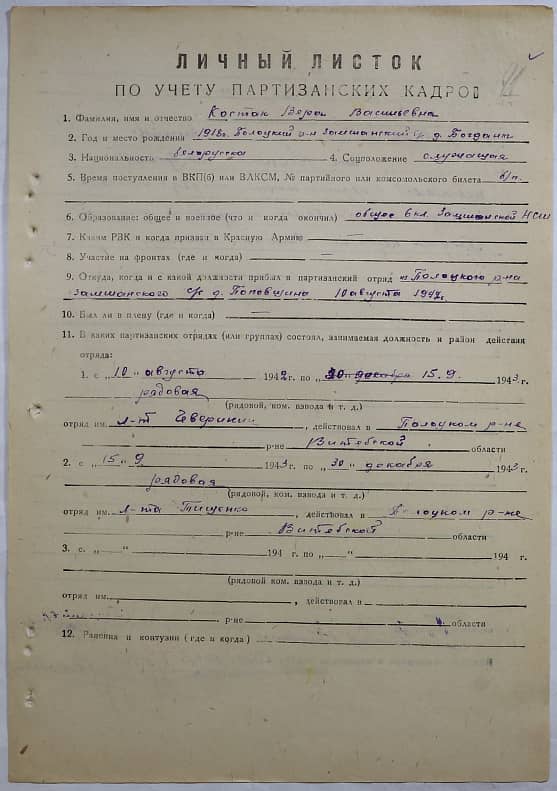 ЛИЧНЫЙ ЛИСТОК
ПО УЧЕТУ ПАРТИЗАНСКИХ КАДРОВ
1. Фамилия, имя и отчество Костюк Вера Васильевна
2. Год и место рождения 1918г. Полоцкий р-н Замшанский с/с д. Богданы
3. Национальность белорусска 4. Соцположение служащая
5. Время поступления в ВКП(б) или ВЛКСМ, № партийного или комсомольского билета б/п.
6. Образование: общее и военное (что и когда окончил) общее 6 кл. НСШ
7. Каким РВК и когда призван в Красную Армию —
8. Участие на фронтах (где и когда) —
9. Откуда, когда и с какой должности прибыл в партизанский отряд из Полоцкого р-на
Замшанского с/с д. Поповщина 10 августа 1942г.
10. Был ли в плену (где и когда) —
11. В каких партизанских отрядах (или группах) состоял, занимаемая должность и район действия
отряда:
1. с „10" августа 1942 г. по „30" декабря 15.9. 1943 г.
рядовая
(рядовой, ком. взвода и т. д.)
отряд им. л-т , действовал в Полоцком р-не
р-не Витебской области
2. с „15" 9 1943 г. по „30" декабря 1943 г.
рядовая
(рядовой, ком. взвода и т. д.)
отряд им. л-та Тищенко, действовал в Полоцком р-не
р-не Витебской области
3. с „—" 194 г. по „—" 194 г.
(рядовой ком. взвода и т. д.)
отряд им. , действовал в
р-не области
12. Ранения и контузии (где и когда)